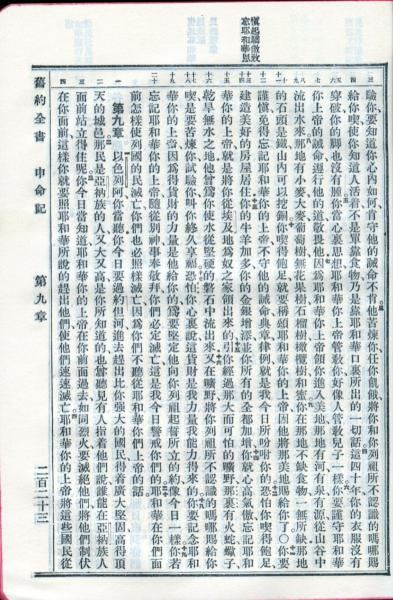 忘耶和華恩
驗你要知道你心內如何肯守他的誡命不肯他苦煉你任你飢餓將你和你列祖所不認識的嗎哪賜
給你喫使你知道人活着不是單靠食物乃是靠耶和華口裏所出的一切話這四十年你的衣服沒有
穿破你的脚也沒有腫你當心裏思想耶和華你上帝管敎你好像人管敎兒子一樣你要謹守耶和華
你上帝的誡命遵行他的道敬畏他因爲耶和華你上帝領你進入美地那地有河有泉有源從山谷中
流出水來那地有小麥大麥葡萄樹無花果樹石榴樹橄欖樹和蜜你在那地不缺食物一無所缺那地
的石頭是鐵山內可以挖銅你喫得飽足就要稱頌耶和華你的上帝因他將那美地賜給你了○你要
謹愼免得忘記耶和華你的上帝不守他的誡命典章律例就是我今日所吩咐你的恐怕你喫得飽足
建造美好的房屋居住你的牛羊加多你的金銀增添並你所有的全都加增你就心高氣傲忘記耶和
華你的上帝就是將你從埃及地爲奴之家領出來的引你經過那大而可怕的曠野那裏有火蛇蠍子
乾旱無水之地他曾爲你使水從堅硬的磐石中流出來又在曠野將你列祖所不認識的嗎哪賜給你
喫是要苦煉你試驗你叫你終久享福恐怕你心裏說這貨財是我力量我能力得來的你要記念耶和
華你的上帝因爲得貨財的力量是他給你的爲要堅定他向你列祖起誓所立的約像今日一樣你若
忘記耶和華你的上帝隨從別神事奉敬拜你們必定滅亡這是我今日警戒你們的耶和華在你們面
前怎樣使列國的民滅亡你們也必照樣滅亡因爲你們不聽從耶和華你們上帝的話
第九章 以色列阿你當聽你今日要過約但河進去趕出比你強大的國民得着廣大堅固高得頂
天的城邑那民是亞衲族的人又大又高是你所知道的也曾聽見有人指着他們說誰能在亞衲族人
面前站立得住呢你今日當知道耶和華你的上帝在你前面過去如同烈火要滅絕他們將他們制伏
在你面前這樣你就要照耶和華所說的趕出他們使他們速速滅亡耶和華你的上帝將這些國民從
舊約全書 申命記 第九章 二百二十三